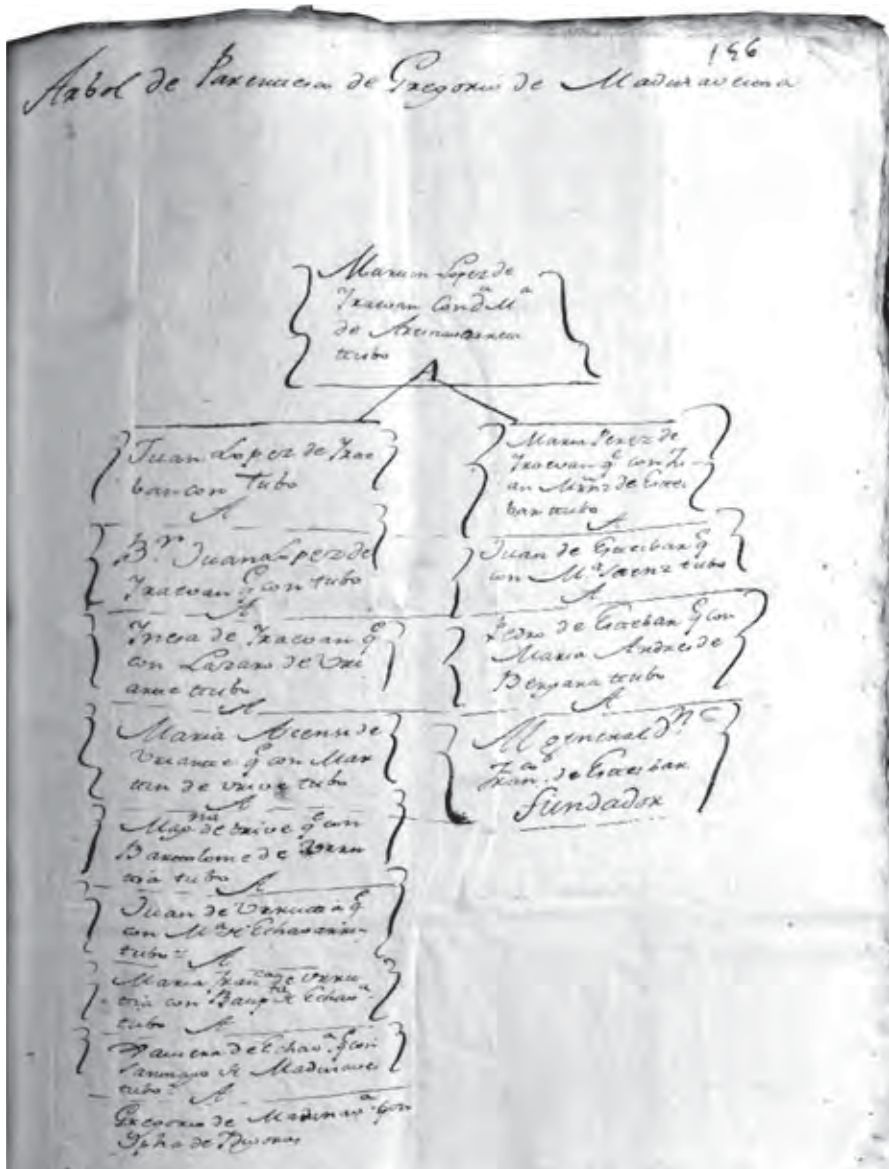 196
Arbol de Parentesco de Gregorio de Maduraveitia
Martin Lopez de
Ysacivan Con dª Mª
de
tubo
A
Juan Lopez de Ysac
ban con tubo
A
Bʳ Juan Lopez de
Ysacivan q̃ con tubo
A
Ynesa de Ysacivan q̃
con Lazaro de Uri
arte tubo
A
Maria Acensi de
Uriarte q̃ con Mar
tin de Urive tubo
A
Magⁿᵃ de Urive qᵉ con
Bartolome de Urru
tia tubo
A
Juan de Urrutia q̃
con Mª de Echavarria
tubo
A
Maria Franᶜᵃ de Urru
tia con Baupᵗᵃ de Echavª
tubo A
de Echavª q̃ con
Santiago de Maduravei
tubo
A
Gregorio de Maduravª con
Jpha de
Maria Perez de
Ysacivan qᵉ con Ju
an Mrñz de Gaci
bar tubo
A
Juan de Gacibar q̃
con Mª Saenz tubo
A
Pedro de Gacibar q̃ con
Maria Andres de
Bergara tubo
A
Al general Dⁿ
Franᶜᵒ de Gacibar
fundador